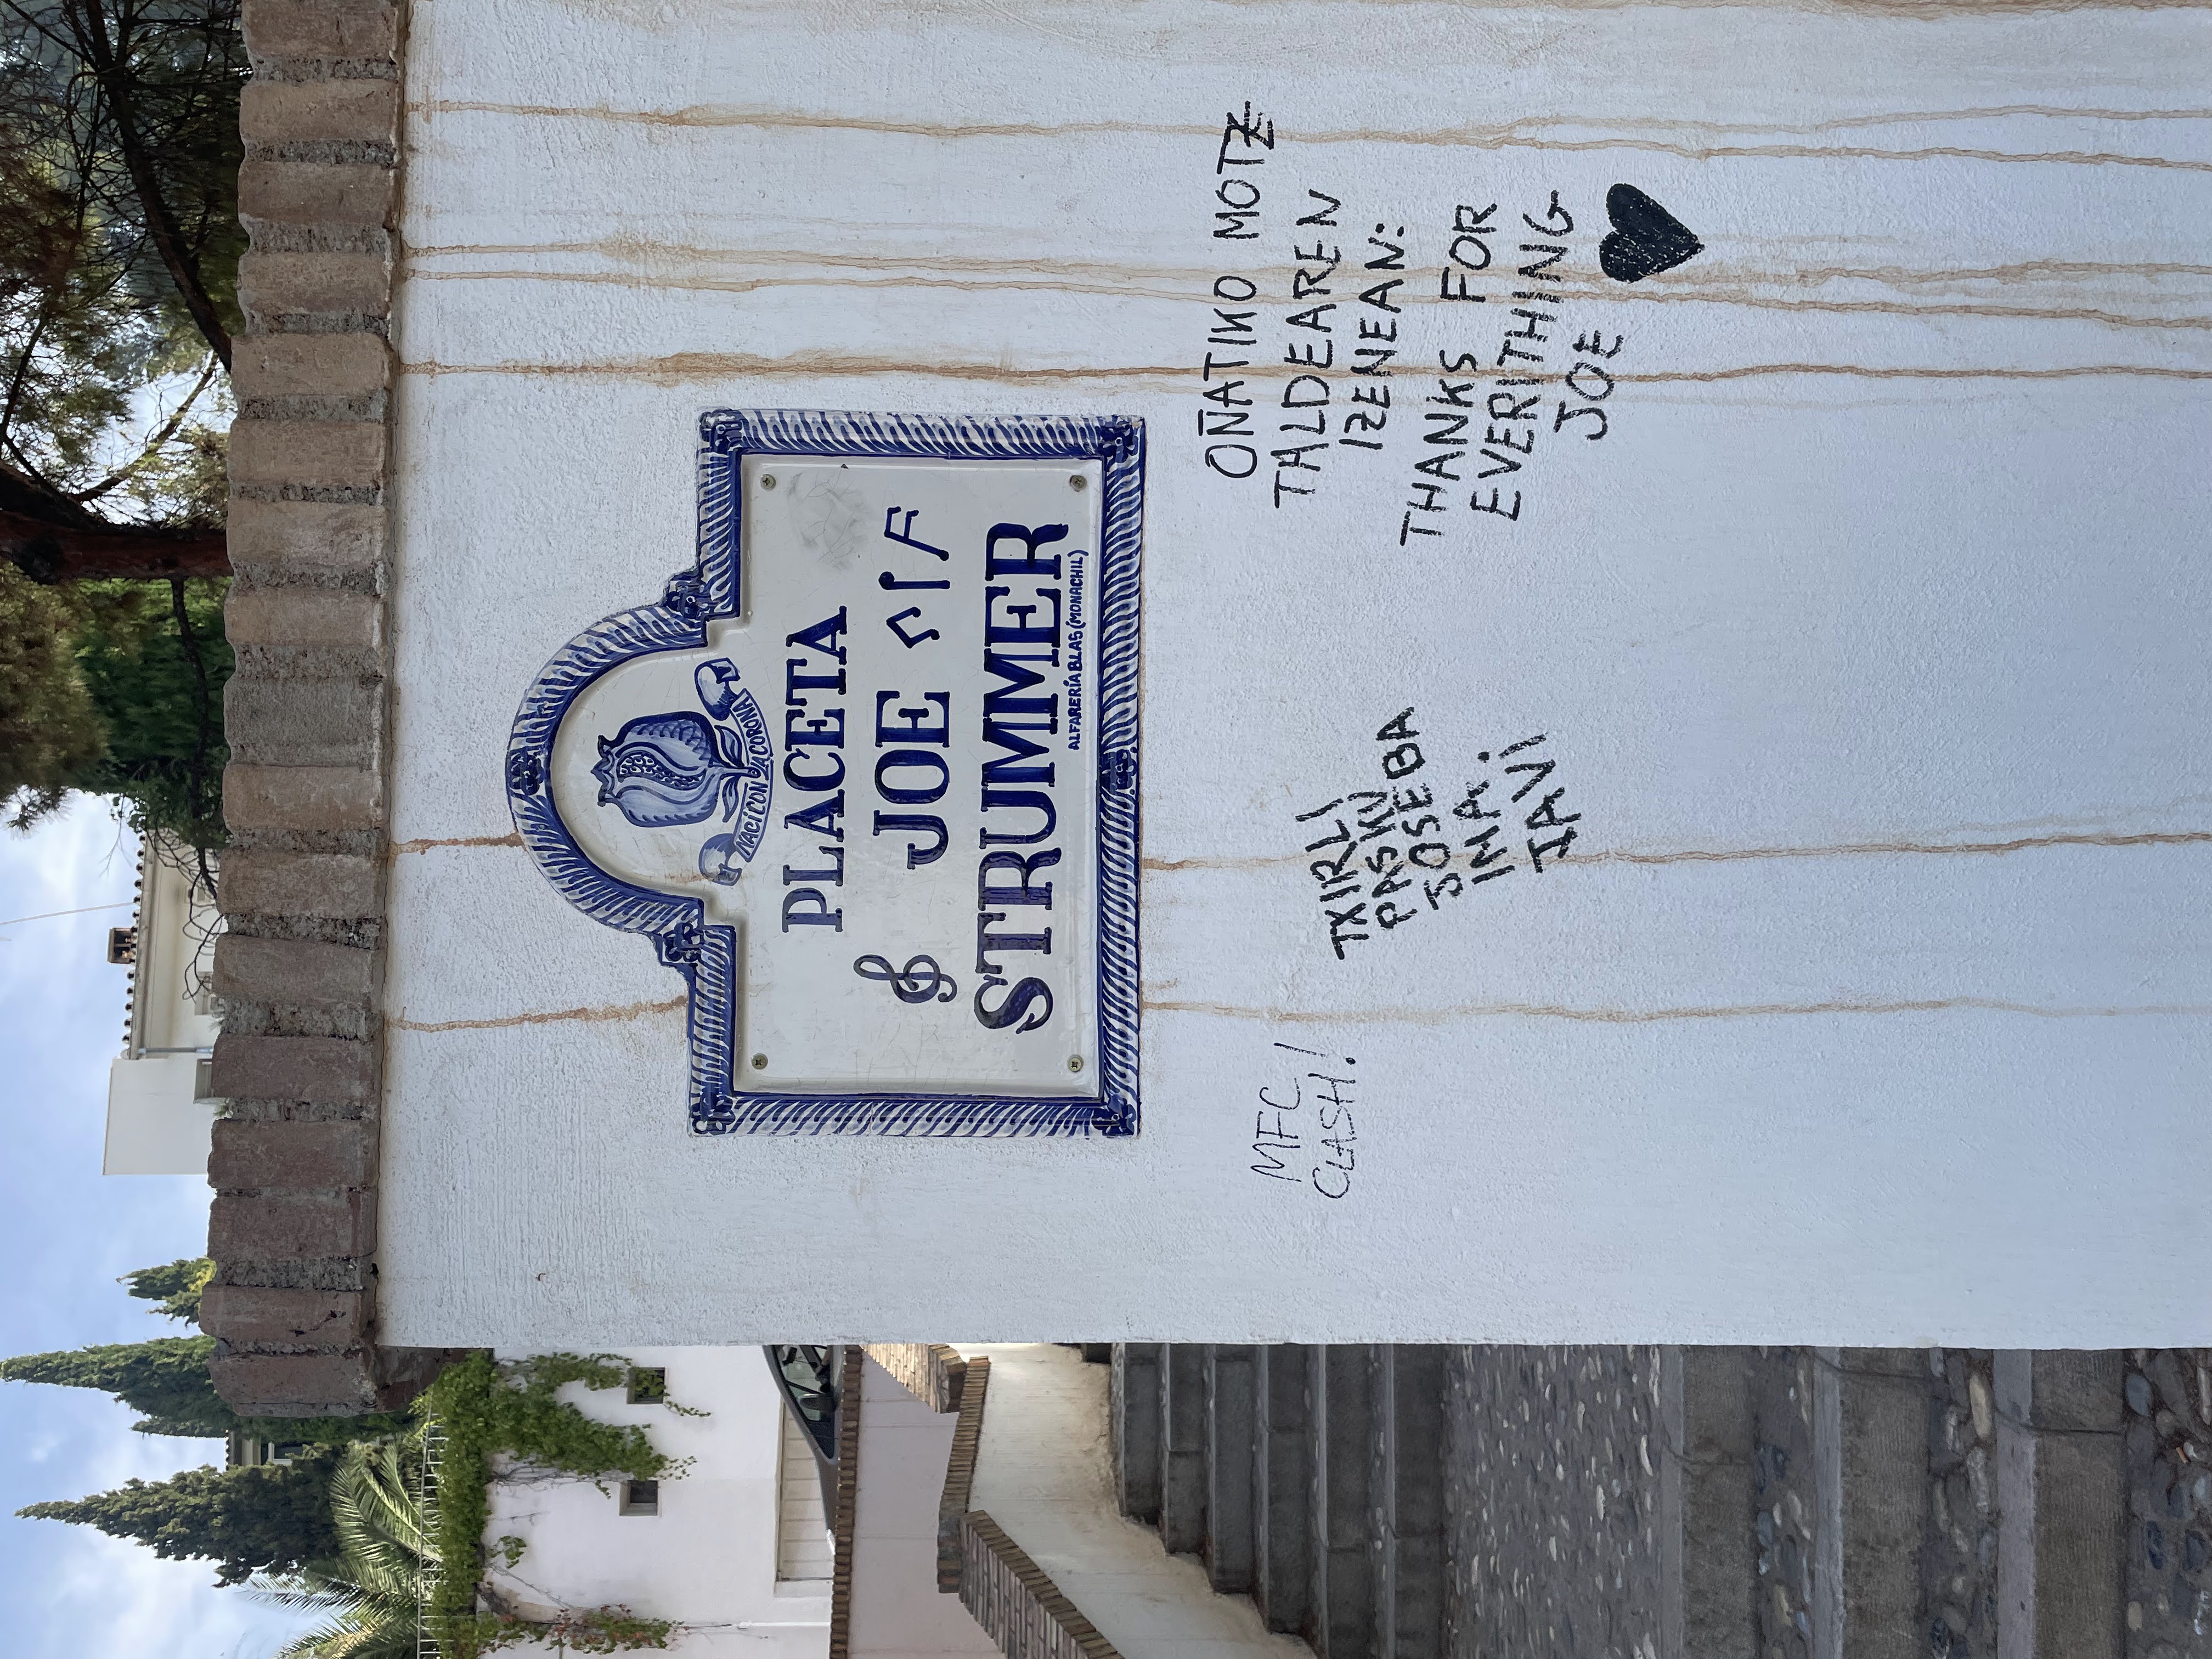 NACÍ CON LA CORONA
PLACETA
JOE
STRUMMER
ALFARERÍA BLAS (MONACHIL)
MFC
CLASH!
TXIRLI
PASKU
JOSEBA
IMA
JAVI
OÑATIKO MOTZ
TALDEAREN
IZENEAN:
THANKS FOR
EVERITHING
JOE